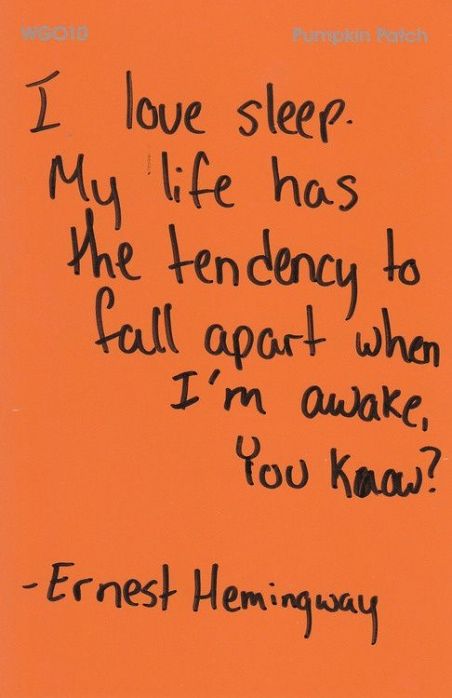 WG010 Pumpkin Patch
I love sleep.
My life has
the tendency to
fall apart when
I'm awake,
You know?
-Ernest Hemingway